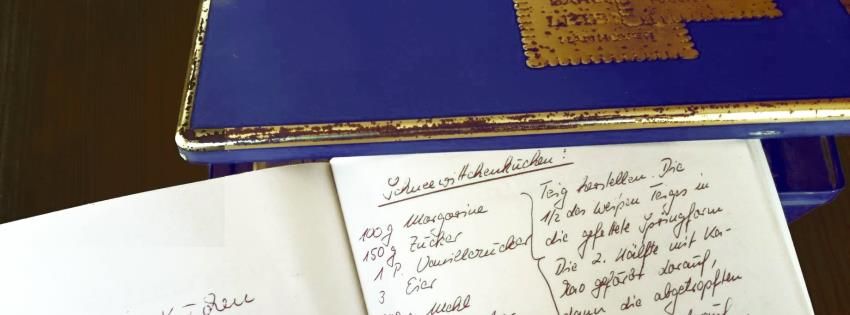 Schneewittchenkuchen:
100g Margarine
150g Zucker
1 P. Vanillezucker
3 Eier
Mehl
Teig herstellen. Die
1/2 des weißen Teiges in
die gefettete Springform
Die 2. Hälfte mit Ka-
kao gefärbt darauf,
dann die abgetropften